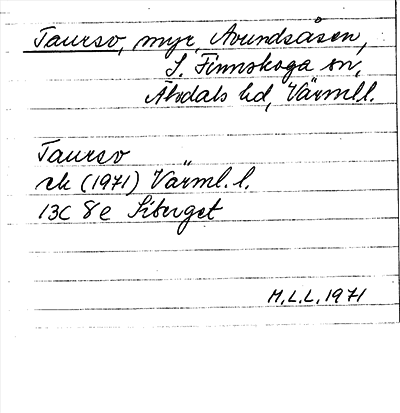 Taurso, myr, Avundsåsen,
S. Finnskoga sn,
Älvdals hd, Värml.l.
Taurso
ek (1971) Värml. l.
13C 8e Siberget
M.L.L. 1971